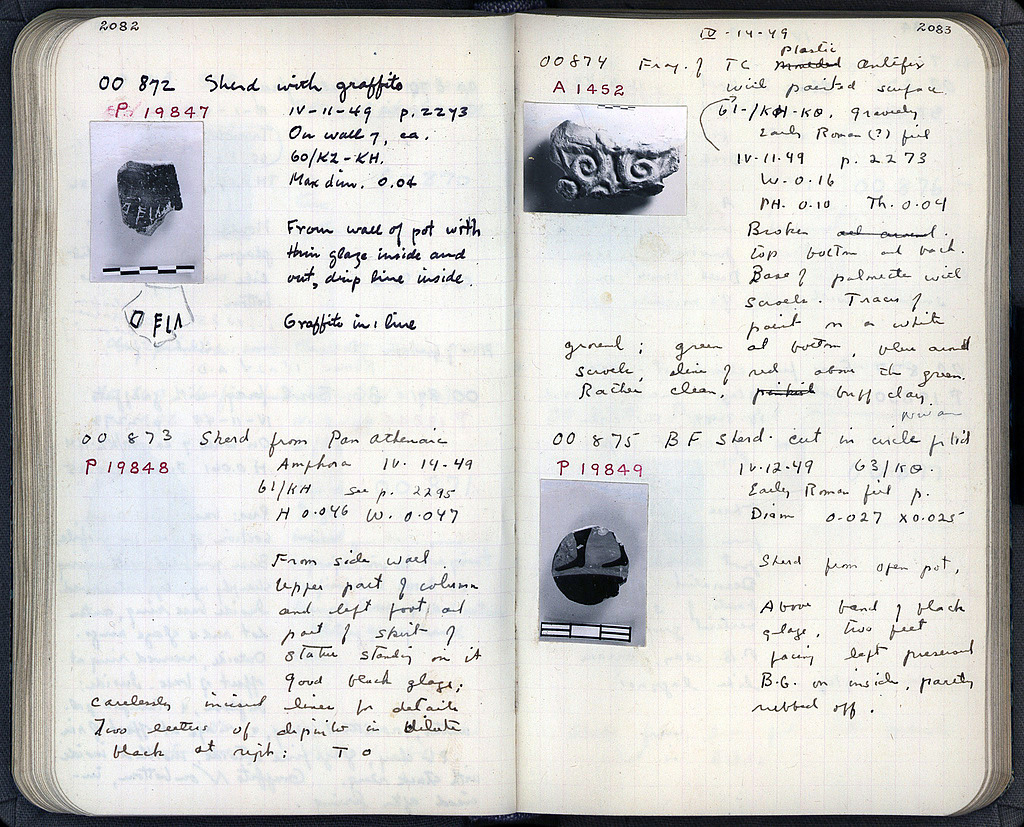 2082
OO 872 Sherd with graffito
P 19847 IV-11-49 p. 2273
On wall 7, ea.
60/KZ-KH.
Max dim. 0.04
From wall of pot with
thin glaze inside and
out, drip line inside.
Graffito in 1 line
ΕΙΛ
OO 873 Sherd from Panathenaic
P 19848 Amphora IV-14-49
61/KH see p. 2295
H 0.046 W. 0.047
From side wall.
Upper part of column
and left foot, and
part of skirt of
statue standing on it
Good black glaze;
carelessly incised lines for details
Two letters of dipinto in dilute
black at right: T O
2083
IV-14-49
Plastic
OO 874 Frag. of TC moulded antefix
A 1452 with painted surface.
61-/KH-KΘ, gravelly
Early Roman (?) fill
IV-11-49 p. 2273
W. 0.16
PH. 0.10 Th. 0.04
Broken all around.
top bottom and back.
Base of palmette with
scrolls. Traces of
paint on a white
ground; green at bottom, blue around
scrolls, line of red above the green.
Rather clean, pinkish buff clay.
OO 875 BF Sherd cut in circle for lid
P 19849 IV-12-49 63/KΘ.
Early Roman fill p.
Diam 0.027 x 0.025
Sherd from open pot,
Above band of black
glaze, two feet
facing left preserved
B.G. on inside, partly
rubbed off.